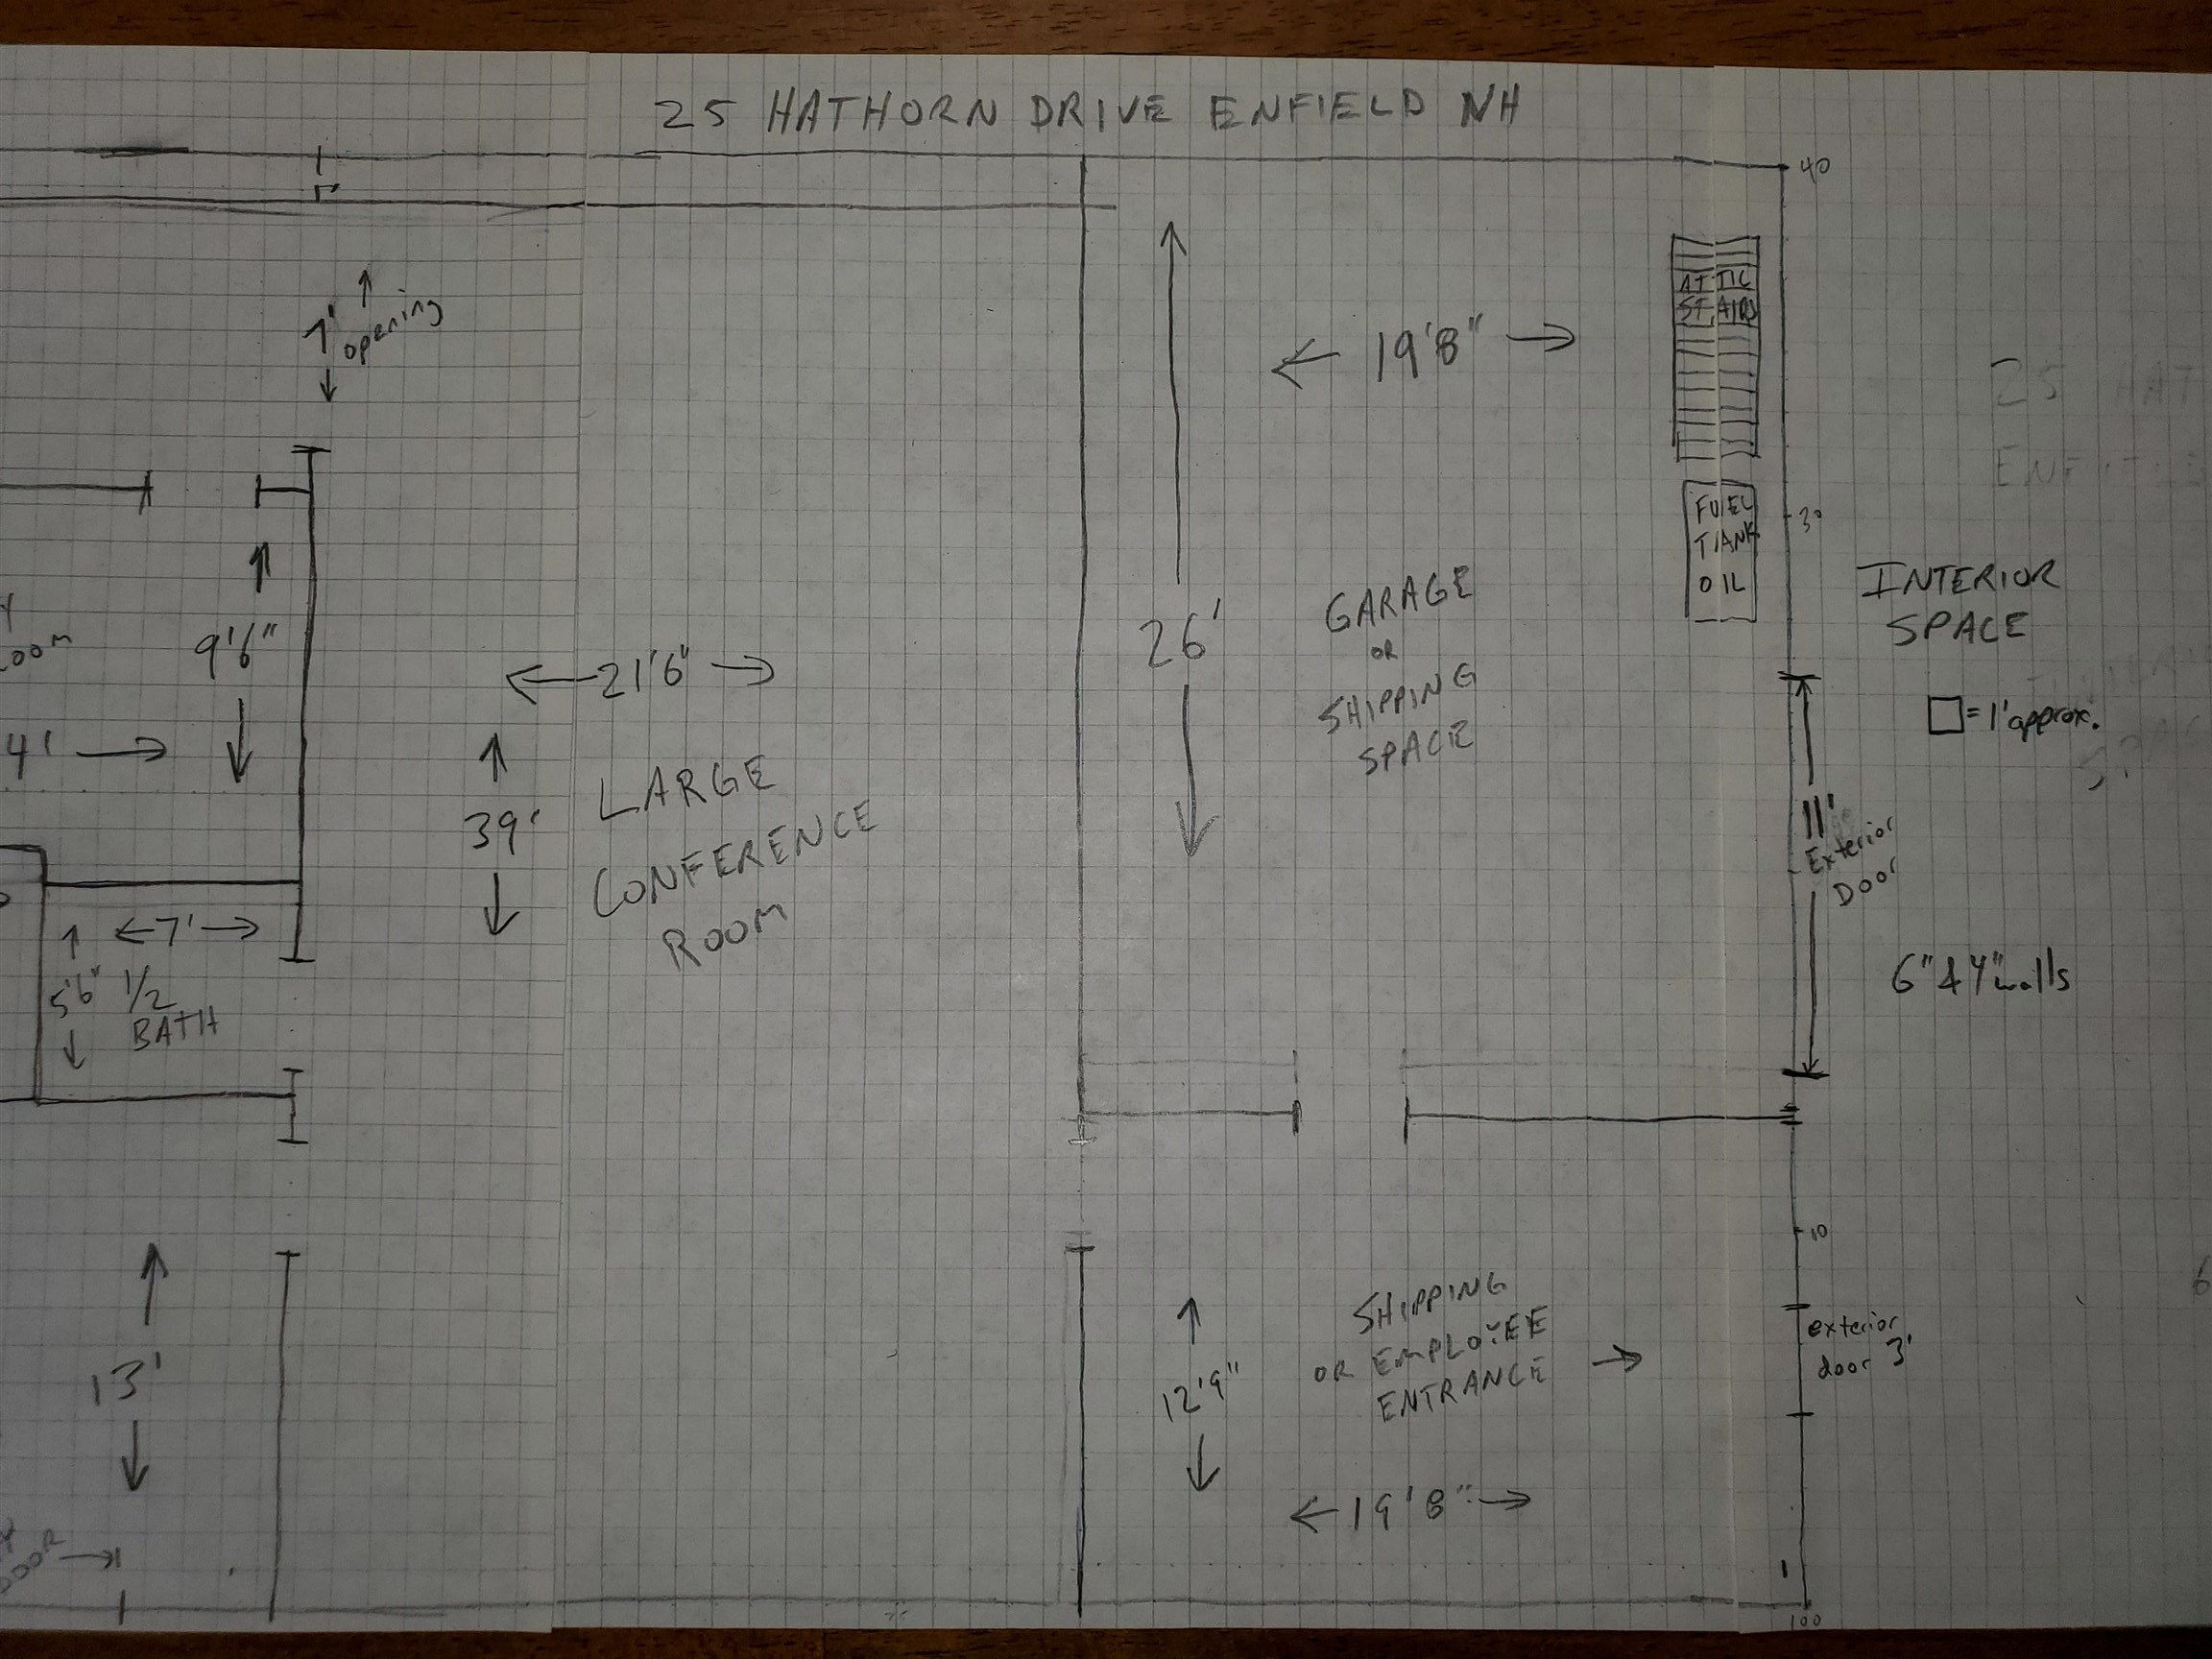 25 HATHORN DRIVE ENFIELD NH
40
7'
opening
19'8"
ATTIC
STAIRS
25 HAT
30
FUEL
TANK
OIL
INTERIOR
SPACE
9'6"
21'6"
26'
GARAGE
OR
SHIPPING
SPACE
= 1' approx.
4'
39'
LARGE
CONFERENCE
ROOM
11'
Exterior
Door
7'
5'6" 1/2
BATH
6" & 4" walls
10
13'
12'9"
SHIPPING
OR EMPLOYEE
ENTRANCE
exterior
door 3'
19'8"
100